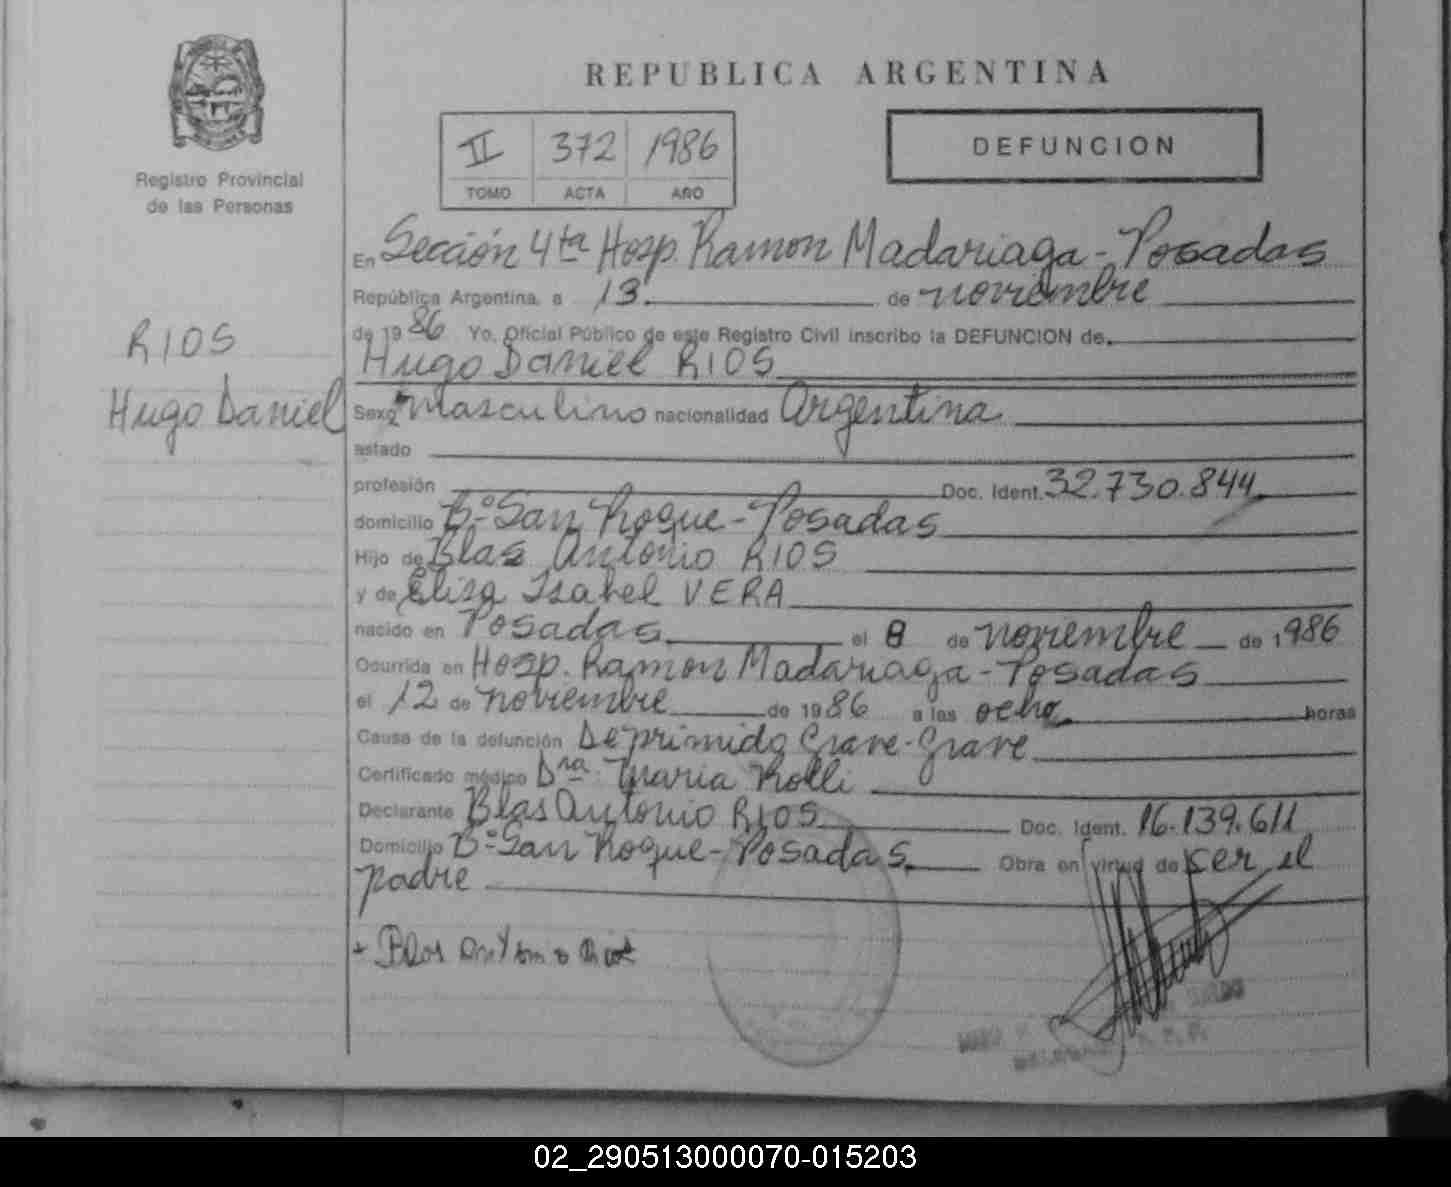 REPUBLICA ARGENTINA
II 372 1986
TOMO ACTA AÑO
DEFUNCION
Registro Provincial
de las Personas
RIOS
Hugo Daniel
En Sección 4ta Hosp. Ramon Madariaga - Posadas
República Argentina, a 13 de noviembre
de 1986 Yo, Oficial Público de este Registro Civil inscribo la DEFUNCION de
Hugo Daniel RIOS
Sexo masculino nacionalidad Argentina
estado
profesión Doc. Ident. 32.730.844
domicilio Bº San Roque - Posadas
Hijo de Blas Antonio RIOS
y de Elisa Isabel VERA
nacido en Posadas el 8 de noviembre de 1986
Ocurrida en Hosp. Ramon Madariaga - Posadas
el 12 de noviembre de 1986 a las ocho horas
Causa de la defunción Deprimido Grave - Grave
Certificado médico Dra. Maria Rolli
Declarante Blas Antonio RIOS Doc. Ident. 16.139.611
Domicilio Bº San Roque - Posadas Obra en virtud de ser el
padre
+ Blas Antonio Rios
02_290513000070-015203